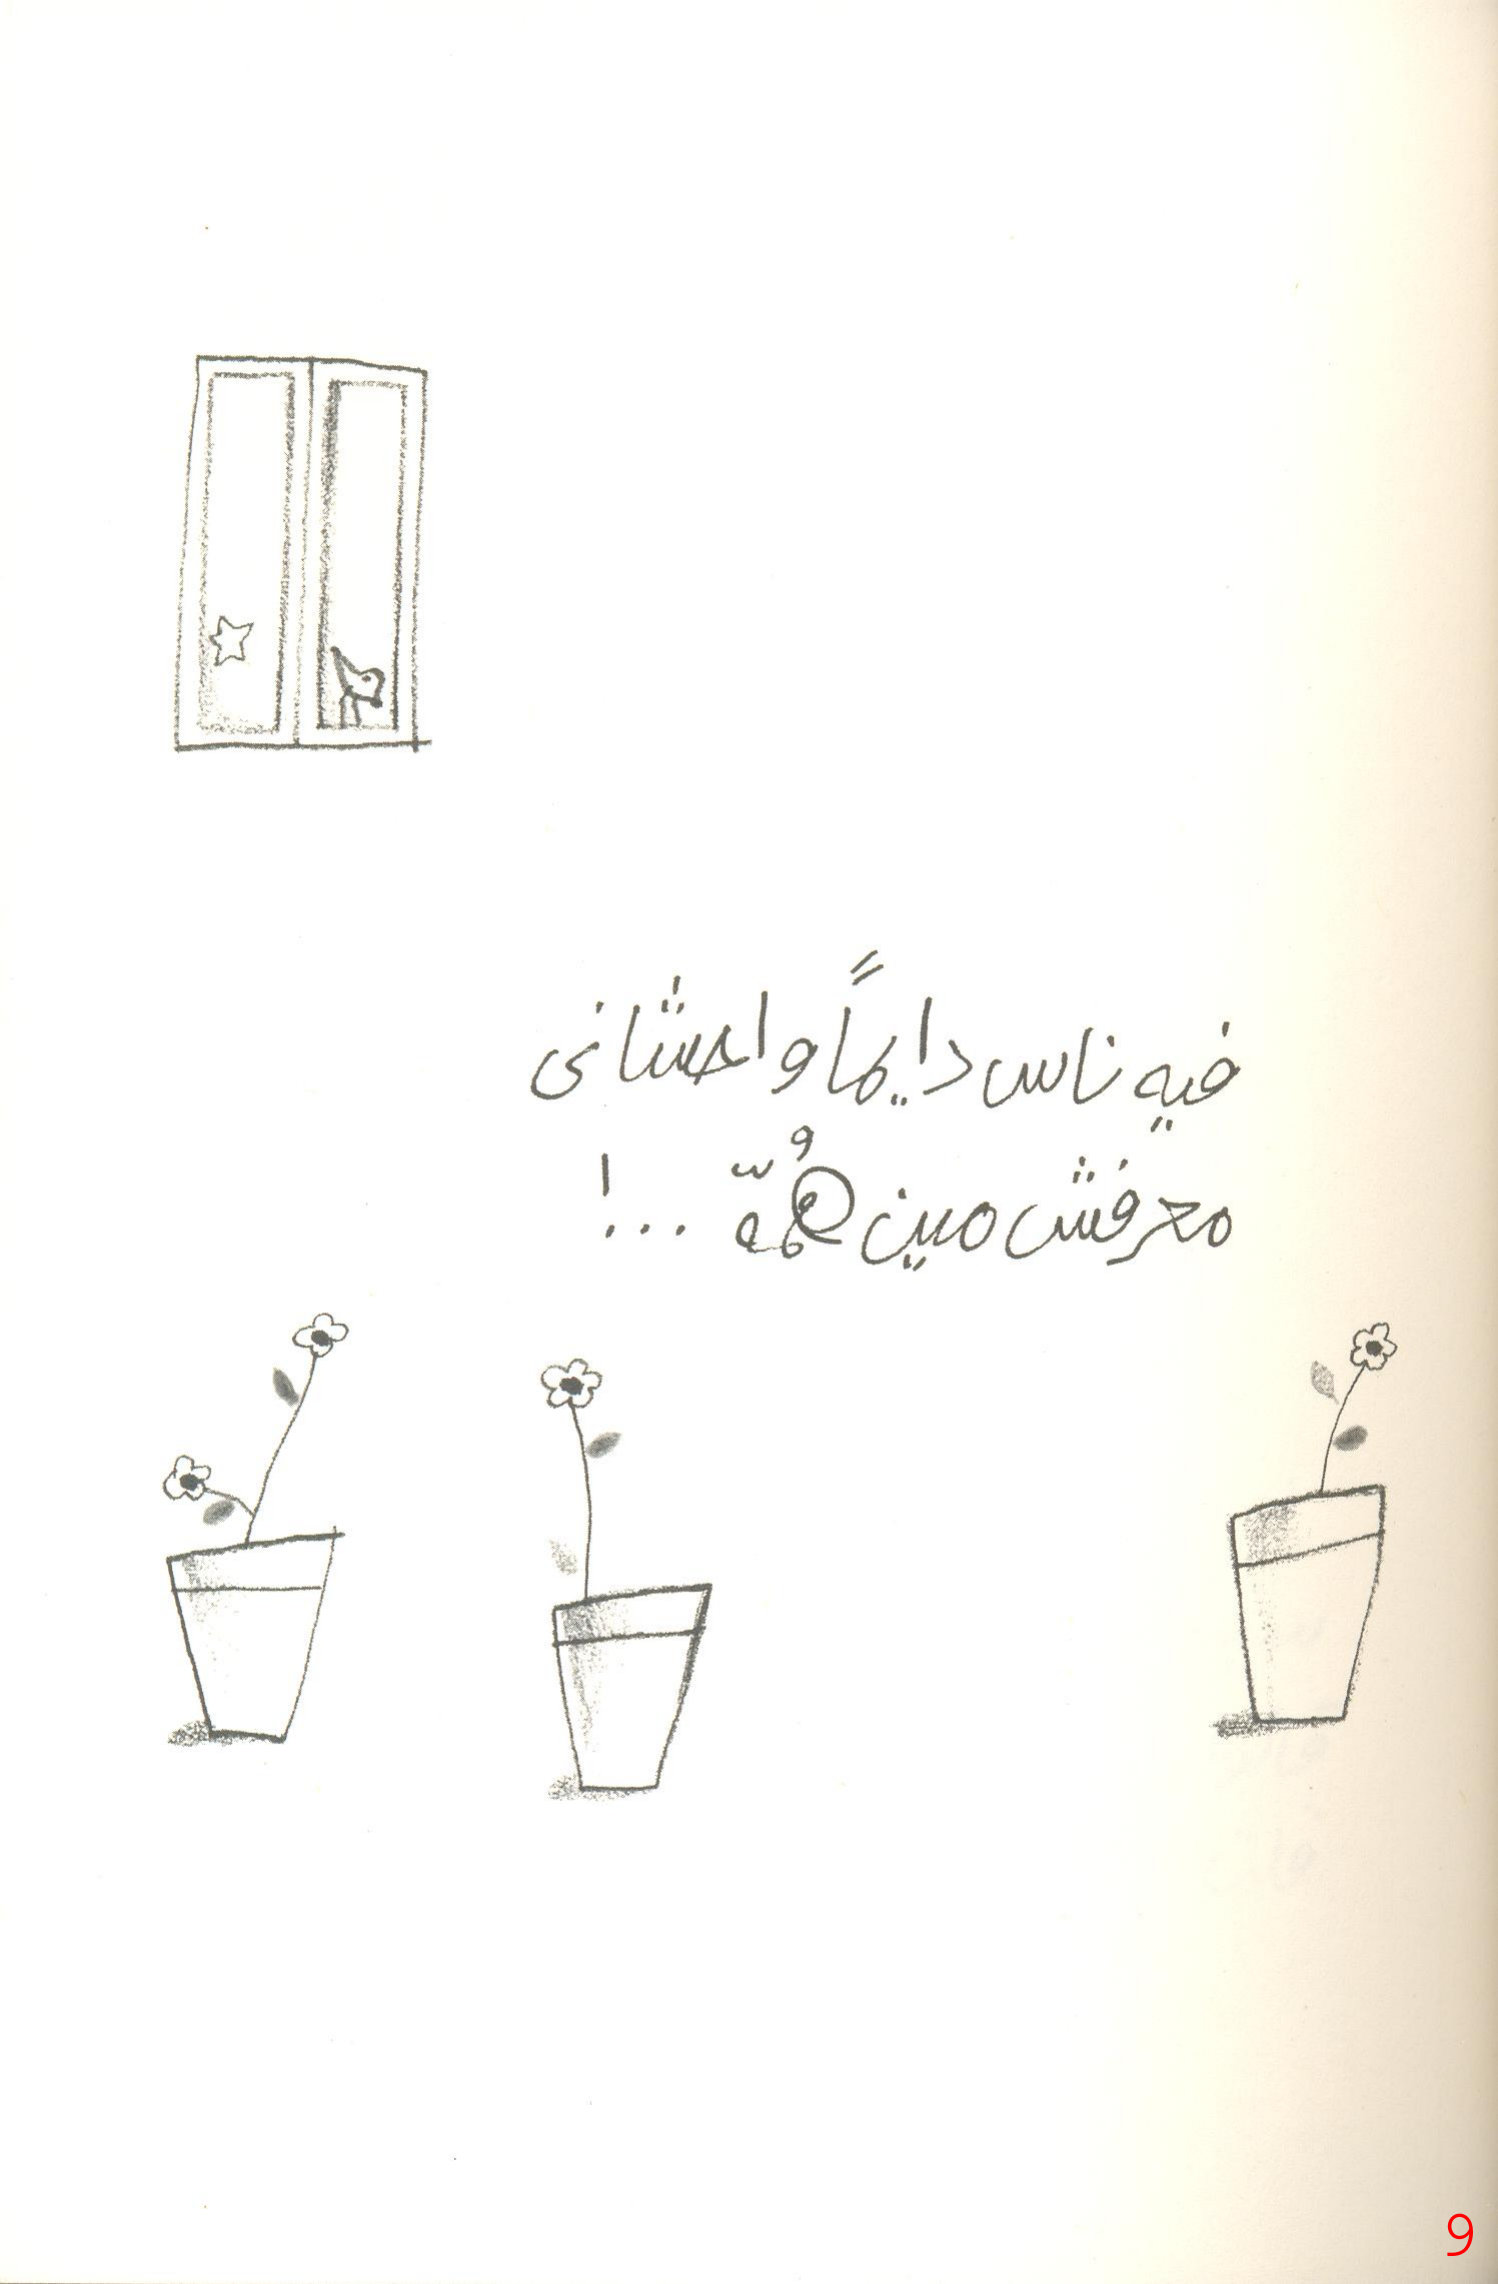 فيه ناس دايماً واحشانى
معرفش مين هُمّه ...!
9